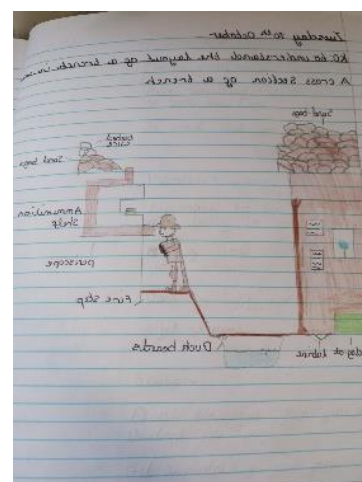 Tuesday 10th October
KO to understand the layout of a trench in
A cross Section of a trench
Sand bags
barbed wire
Sand bags
Ammunition Shelf
periscope
Fire step
Duck boards